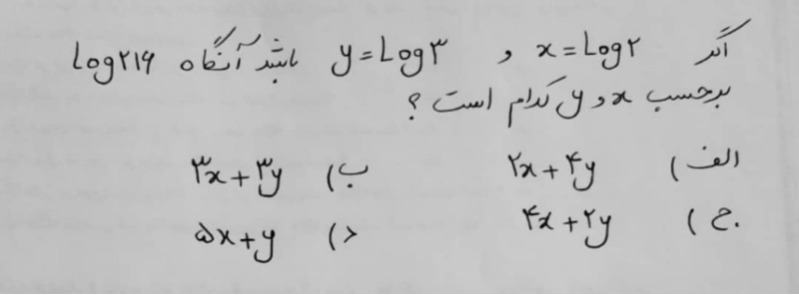 اگر x = Log۲ و y = Log۳ باشد آنگاه Log۲۱۶
برحسب x و y کدام است ؟
الف) ۲x + ۴y ب) ۳x + ۳y
ج) ۴x + ۲y د) ۵x + y